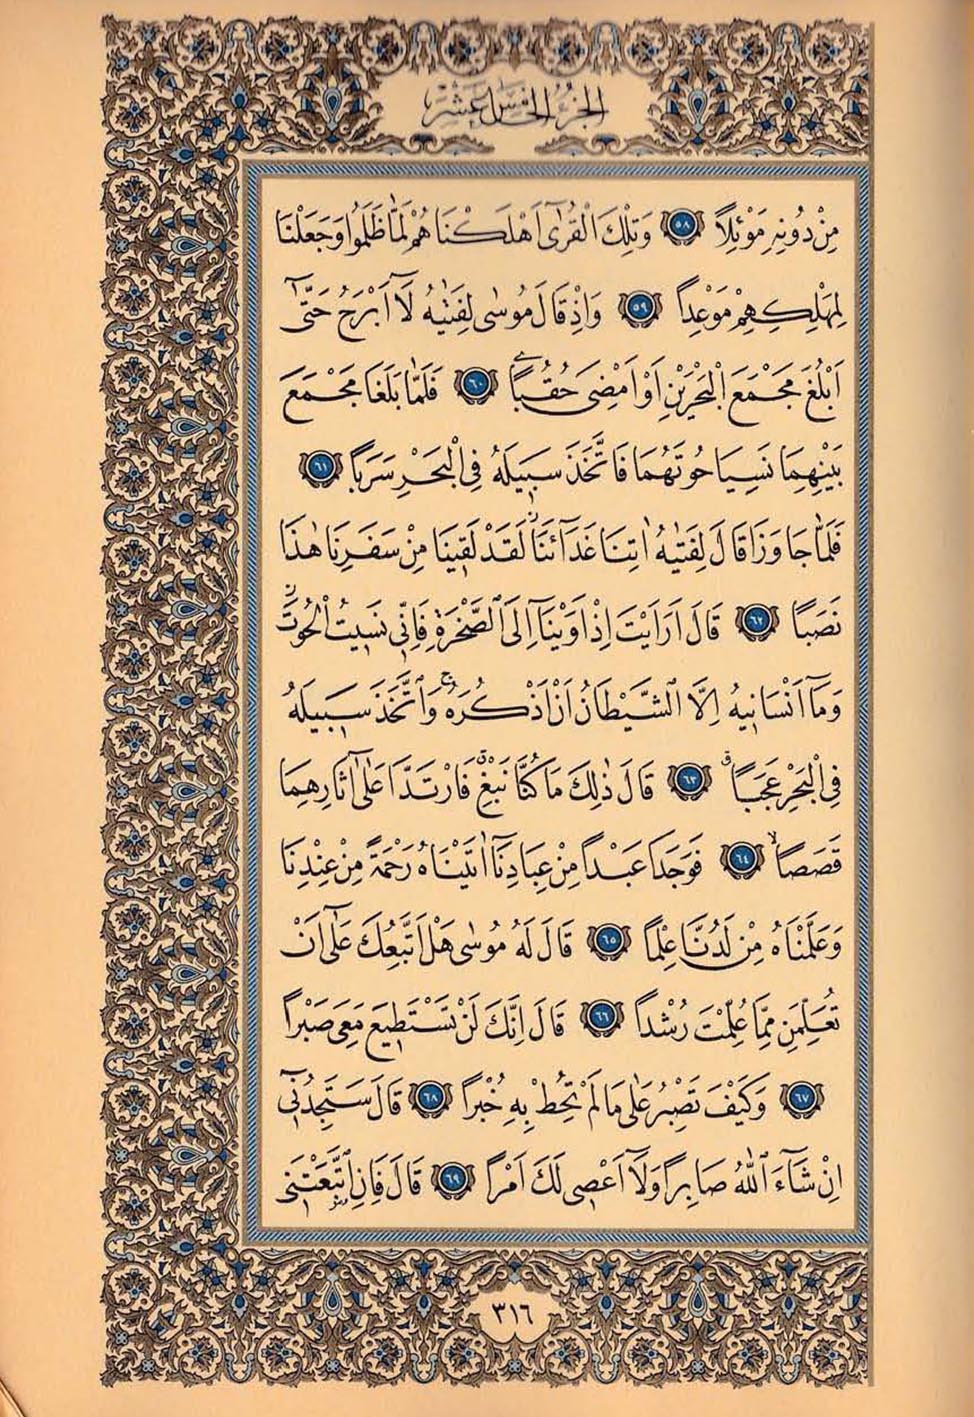 الجزء الخامس عشر
مِنْ دُونِهِ مَوْئِلًا ٥٨ وَتِلْكَ الْقُرٰٓى اَهْلَكْنَاهُمْ لَمَّا ظَلَمُوا وَجَعَلْنَا
لِمَهْلِكِهِمْ مَوْعِدًا ٥٩ وَاِذْ قَالَ مُوسٰى لِفَتٰيهُ لَٓا اَبْرَحُ حَتّٰٓى
اَبْلُغَ مَجْمَعَ الْبَحْرَيْنِ اَوْ اَمْضِيَ حُقُبًا ٦٠ فَلَمَّا بَلَغَا مَجْمَعَ
بَيْنِهِمَا نَسِيَا حُوتَهُمَا فَاتَّخَذَ سَبِيلَهُ فِي الْبَحْرِ سَرَبًا ٦١
فَلَمَّا جَاوَزَا قَالَ لِفَتٰيهُ اٰتِنَا غَدَٓائَنَاۘ لَقَدْ لَقِينَا مِنْ سَفَرِنَا هٰذَا
نَصَبًا ٦٢ قَالَ اَرَاَيْتَ اِذْ اَوَيْنَٓا اِلَى الصَّخْرَةِ فَاِنِّي نَسِيتُ الْحُوتَۘ
وَمَٓا اَنْسَانِيهُ اِلَّا الشَّيْطَانُ اَنْ اَذْكُرَهُۚ وَاتَّخَذَ سَبِيلَهُ
فِي الْبَحْرِ عَجَبًا ٦٣ قَالَ ذٰلِكَ مَا كُنَّا نَبْغِۗ فَارْتَدَّا عَلٰٓى اٰثَارِهِمَا
قَصَصًاۙ ٦٤ فَوَجَدَا عَبْدًا مِنْ عِبَادِنَٓا اٰتَيْنَاهُ رَحْمَةً مِنْ عِنْدِنَا
وَعَلَّمْنَاهُ مِنْ لَدُنَّا عِلْمًا ٦٥ قَالَ لَهُ مُوسٰى هَلْ اَتَّبِعُكَ عَلٰٓى اَنْ
تُعَلِّمَنِ مِمَّا عُلِّمْتَ رُشْدًا ٦٦ قَالَ اِنَّكَ لَنْ تَسْتَطِيعَ مَعِيَ صَبْرًا
٦٧ وَكَيْفَ تَصْبِرُ عَلٰى مَا لَمْ تُحِطْ بِهِ خُبْرًا ٦٨ قَالَ سَتَجِدُنِٓي
اِنْ شَٓاءَ اللّٰهُ صَابِرًا وَلَٓا اَعْصِي لَكَ اَمْرًا ٦٩ قَالَ فَاِنِ اتَّبَعْتَنِي
٣١٦